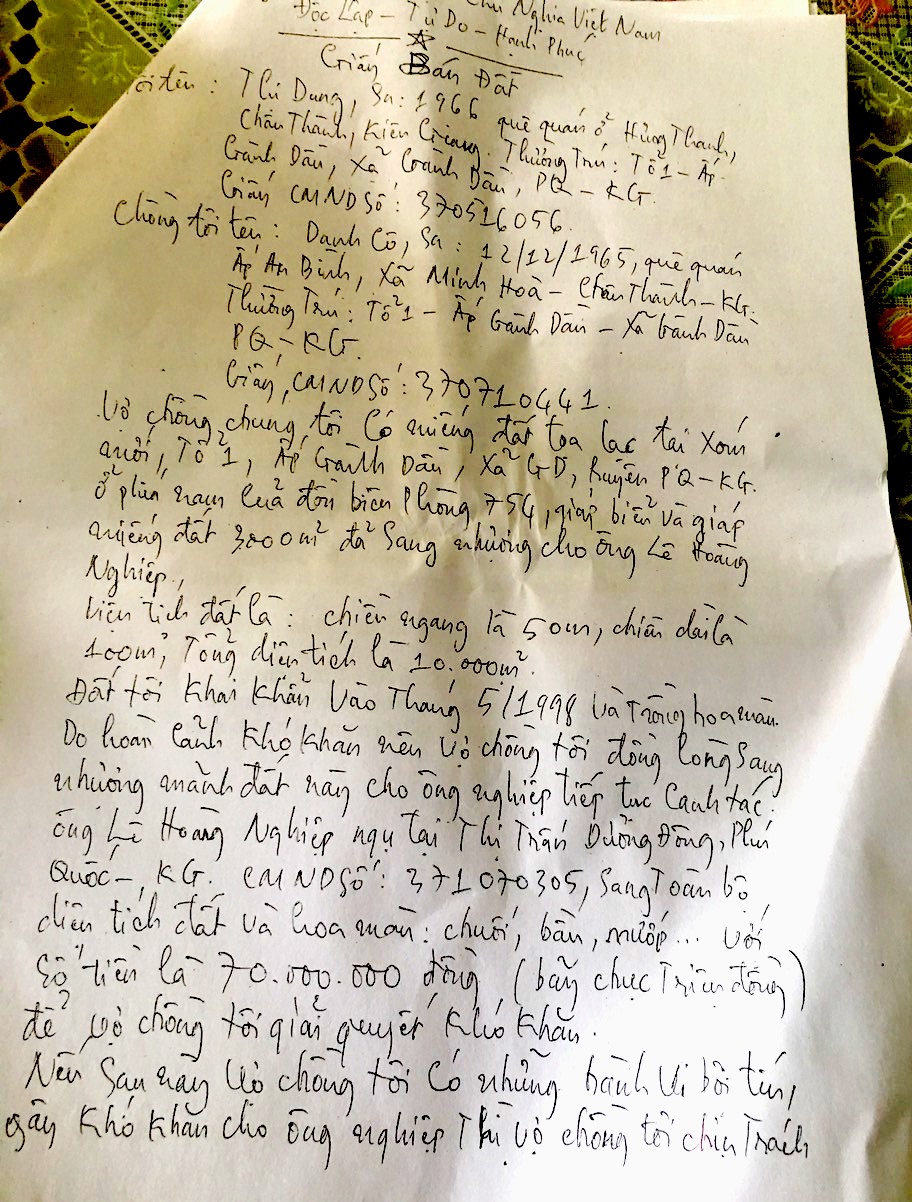 Chủ Nghĩa Việt Nam
Độc Lập – Tự Do – Hạnh Phúc
Giấy Bán Đất
Tôi tên : Thị Dung, Sn : 1966 quê quán ở Hưng Thanh,
Châu Thành, Kiên Giang. Thường Trú : Tổ 1 – Ấp
Gành Dầu, Xã Gành Dầu, PQ – KG.
Giấy CMND Số : 370516056.
Chồng tôi tên : Danh Cô, Sn : 12/12/1965, quê quán
Ấp An Bình, Xã Minh Hoà – Châu Thành – KG.
Thường Trú : Tổ 1 – Ấp Gành Dầu – Xã Gành Dầu
PQ – KG.
Giấy, CMND Số : 370710441.
Vợ chồng chung tôi Có miếng đất tọa lạc tại Xóm
mới, Tổ 1, Ấp Gành Dầu, Xã GD, Huyện PQ – KG.
Ở phía nam của đồn biên Phòng 754, giáp biển và giáp
miếng đất 3000m² đã Sang nhượng cho ông Lê Hoàng
Nghiệp.,
Diện tích đất là : chiều ngang là 50m, chiều dài là
100m, Tổng diện tích là 10.000m².
Đất tôi Khai Khẩn Vào Tháng 5/1998 và Trồng hoa màu.
Do hoàn cảnh Khó Khăn nên vợ chồng tôi đồng lòng Sang
nhượng mảnh đất này cho ông nghiệp tiếp tục Canh tác.
ông Lê Hoàng Nghiệp ngụ tại Thị Trấn Dương Đông, Phú
Quốc – KG. CMND Số : 371070305, Sang Toàn bộ
diện tích đất và hoa màu : chuối, bần, mướp... Với
Số tiền là 70.000.000 đồng (bảy chục Triệu đồng)
để vợ chồng tôi giải quyết Khó Khăn.
Nếu Sau này Vợ chồng tôi Có những hành vi bội tín,
gây Khó Khăn cho ông nghiệp Thì vợ chồng tôi chịu Trách